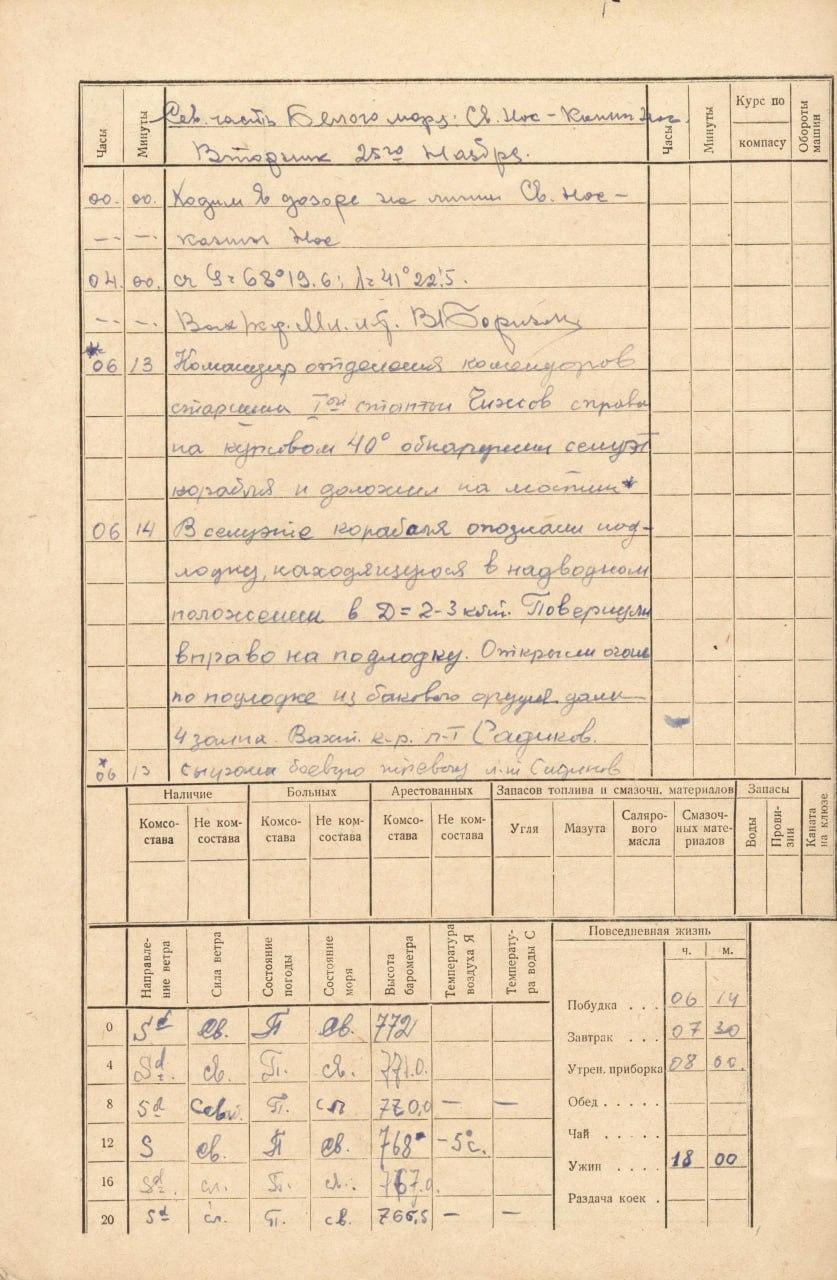 Часы Минуты Сев. часть Белого моря: Св. Нос – Канин Нос. Часы Минуты Курс по компасу Обороты машин
Вторник 25го Ноября.
00. 00. Ходим в дозоре на линии Св. Нос –
–·– –·– Канин Нос
04. 00. сч φ= 68°19.6; λ= 41°22'.5.
–·– –·– Вах к.р. Мл. л-т.
*06 13 Командир отделения комендоров
старшина Iой статьи Чижов справа
на курсовом 40° обнаружил силуэт
корабля и доложил на мостик*
06 14 В силуэте корабля опознали под-
лодку, находящуюся в надводном
положении в D= 2-3 кбт. Повернули
вправо на подлодку. Открыли огонь
по подлодке из бакового орудия дали
4 залпа. Вахт. к-р. л-т Садиков.
*06 13 сыграли боевую тревогу л-т Садиков
Наличие Больных Арестованных Запасов топлива и смазочн. материалов Запасы
Комсо-става Не ком-состава Комсо-става Не ком-состава Комсо-става Не ком-состава Угля Мазута Саляро-вого масла Смазоч-ных мате-риалов Воды Прови-зии Каната на клюзе
Направле-ние ветра Сила ветра Состояние погоды Состояние моря Высота барометра Температура воздуха Я Температу-ра воды С
0 Sd св. П св. 772
4 Sd. св. П. св. 771.0.
8 Sd П. сл 770,0 — —
12 S св. П св. 768 -5°с.
16 сл. П. сл. 767.0.
20 Sd сл. П. св. 766,5 — —
Повседневная жизнь
ч. м.
Побудка . . . 06 14
Завтрак . . . 07 30
Утрен. приборка 08 00.
Обед . . . . .
Чай . . . . .
Ужин . . . . 18 00
Раздача коек .